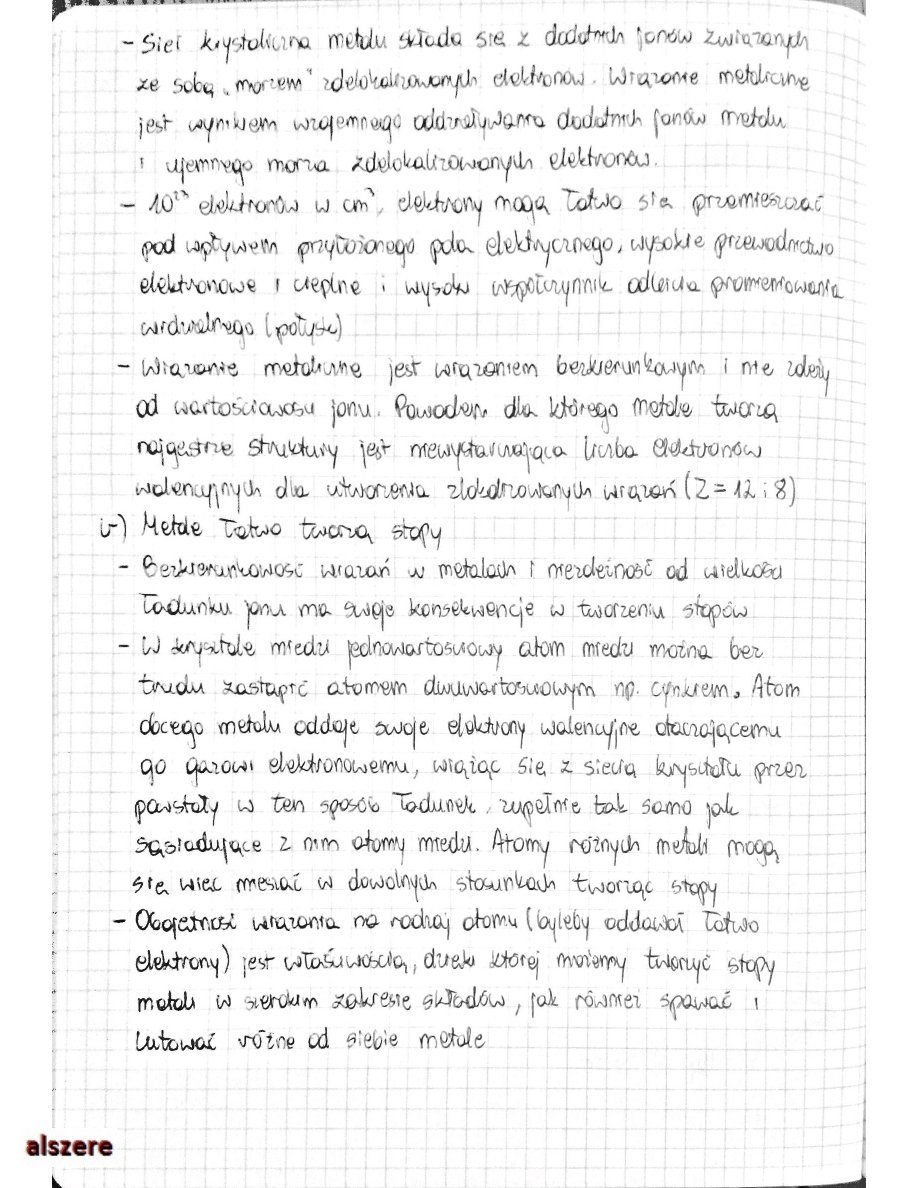 - Sieć krystaliczna metalu składa się z dodatnich jonów związanych
ze sobą „morzem" zdelokalizowanych elektronów. Wiązanie metaliczne
jest wynikiem wzajemnego oddziaływania dodatnich jonów metalu
i ujemnego morza zdelokalizowanych elektronów.
- 10²³ elektronów w cm³, elektrony mogą łatwo się przemieszczać
pod wpływem przyłożonego pola elektrycznego, wysokie przewodnictwo
elektronowe i cieplne i wysoki współczynnik odbicia promieniowania
widzialnego (połysk)
- Wiązanie metaliczne jest wiązaniem bezkierunkowym i nie zależy
od wartościowości jonu. Powodem dla którego metale tworzą
najgęstrze struktury jest niewystarczająca liczba elektronów
walencyjnych dla utworzenia zlokalizowanych wiązań (Z = 12 i 8)
Metale łatwo tworzą stopy
- Bezkierunkowość wiązań w metalach i niezależność od wielkości
ładunku jonu ma swoje konsekwencje w tworzeniu stopów
- W krysztale miedzi jednowartościowy atom miedzi można bez
trudu zastąpić atomem dwuwartościowym np. cynkiem. Atom
obcego metalu oddaje swoje elektrony walencyjne otaczającemu
go gazowi elektronowemu, wiążąc się z siecią kryształu przez
powstały w ten sposób ładunek, zupełnie tak samo jak
sąsiadujące z nim atomy miedzi. Atomy różnych metali mogą
się więc mieszać w dowolnych stosunkach tworząc stopy
- Obojętność wiązania na rodzaj atomu (byleby oddawał łatwo
elektrony) jest właściwością, dzięki której możemy tworzyć stopy
metali w szerokim zakresie składów, jak również spawać i
lutować różne od siebie metale
alszere